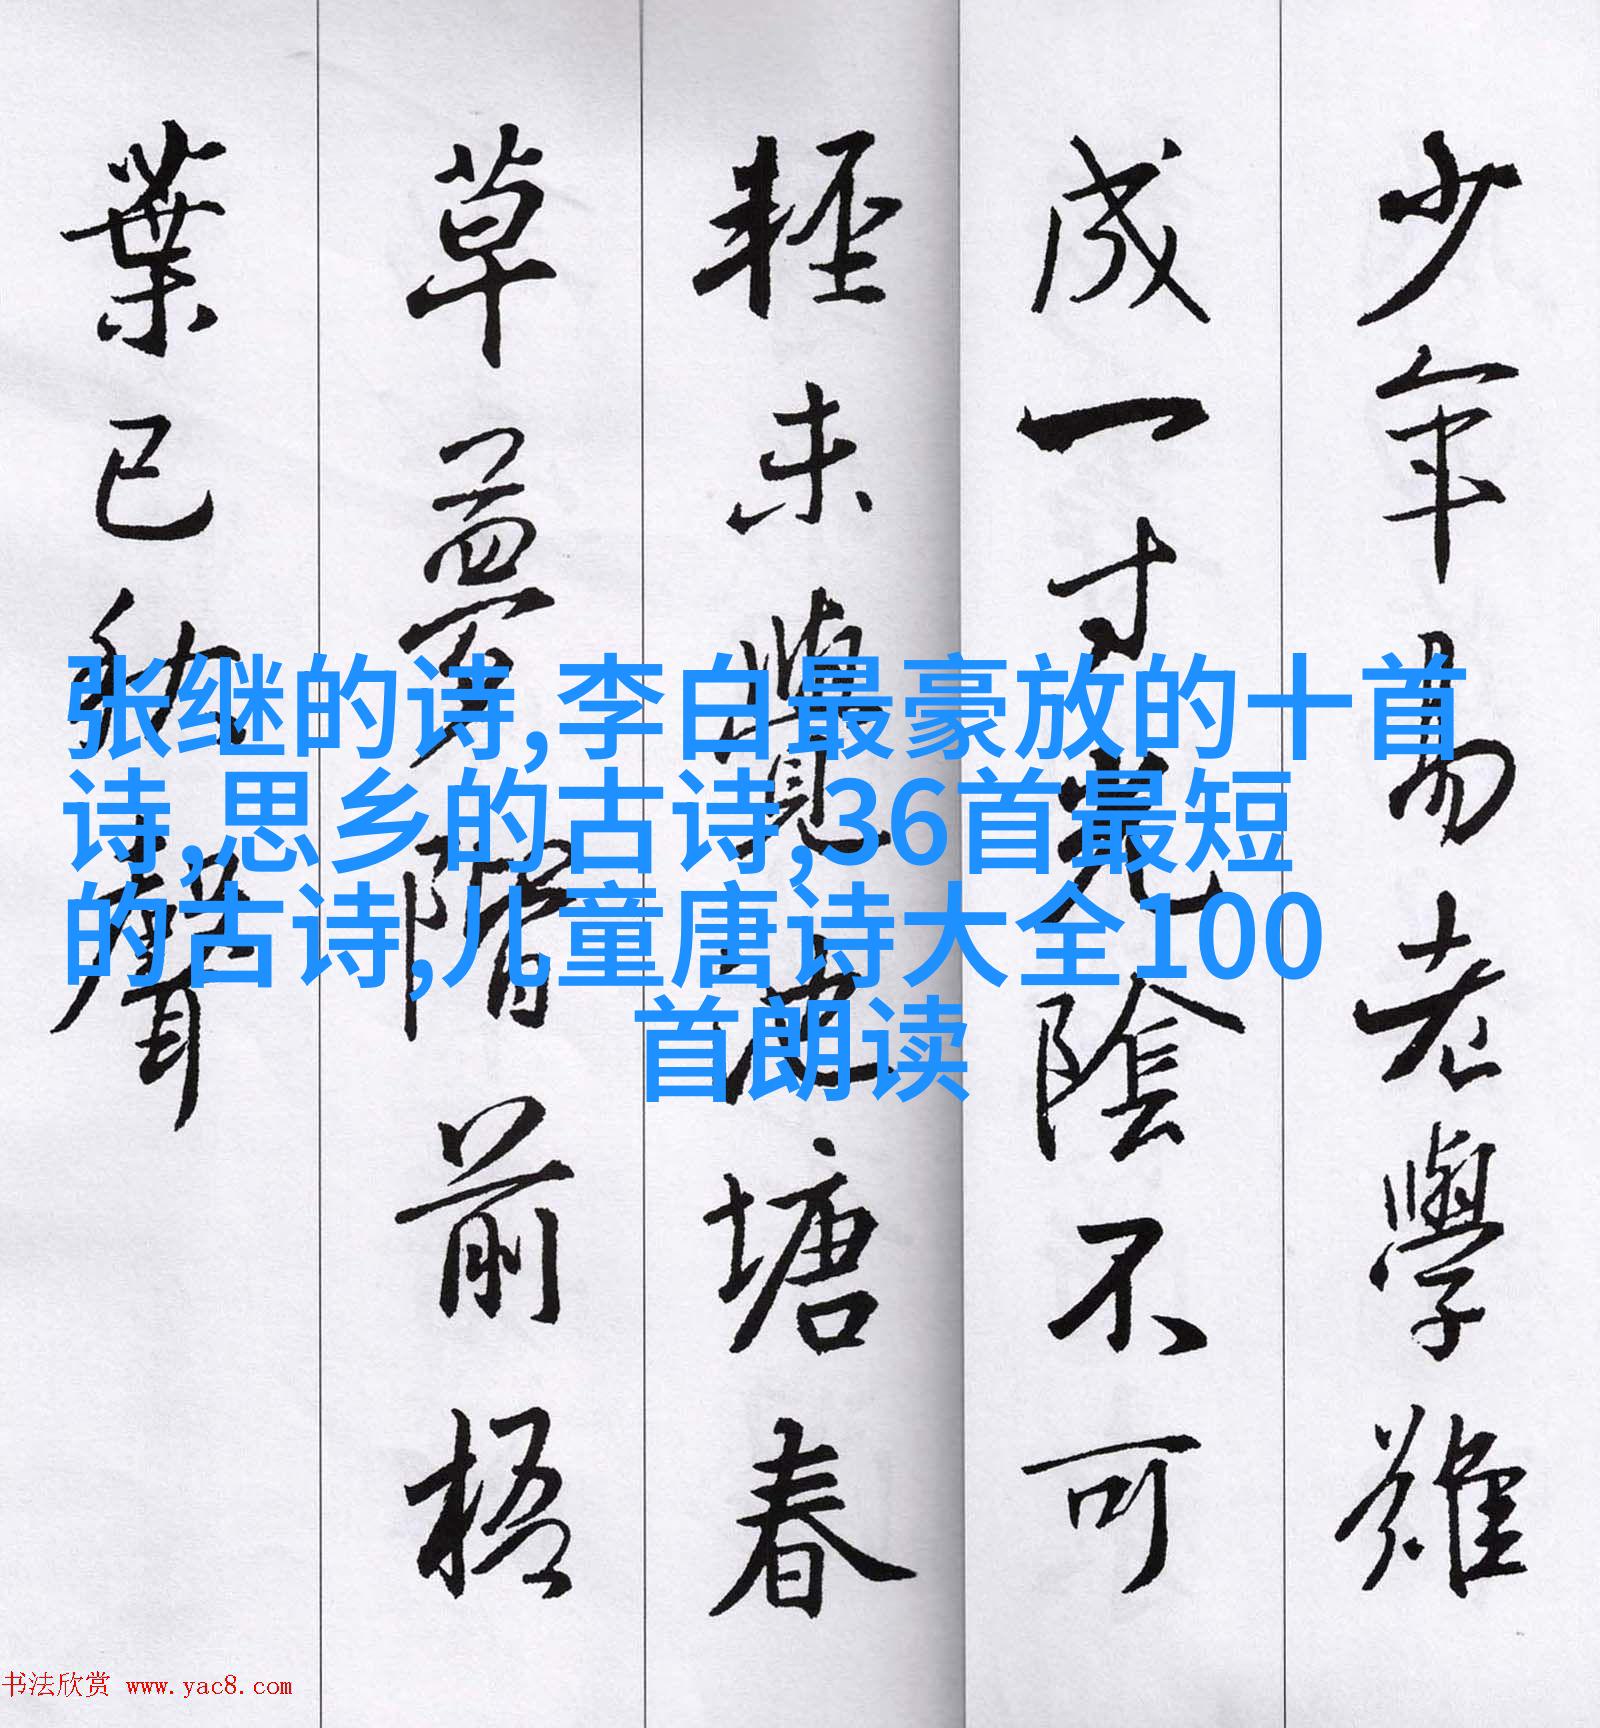 少年易老學難
成一寸光陰不可
輕未覺池塘春
草夢階前梧
葉已秋聲
张继的诗,李白最豪放的十首
诗,思乡的古诗,36首最短
的古诗,儿童唐诗大全100
首朗读
书法欣赏 www.yac8.com